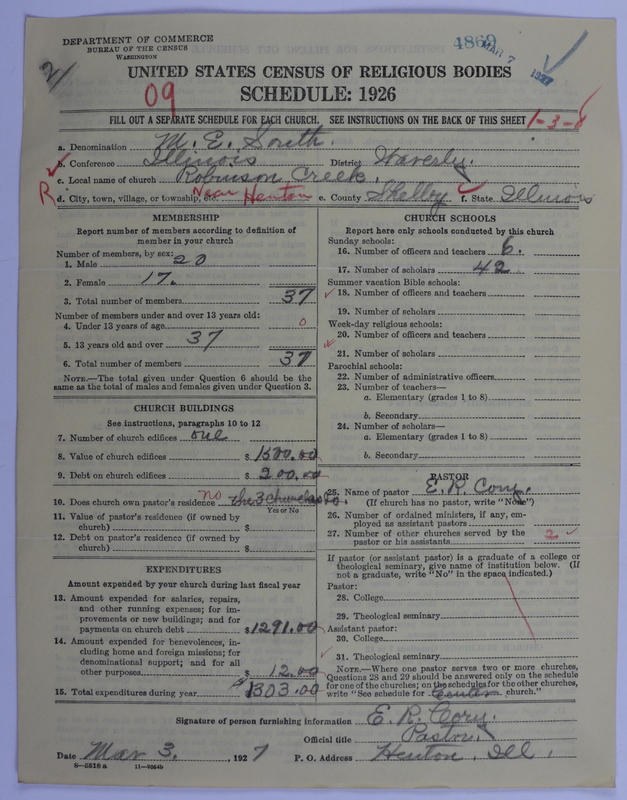 DEPARTMENT OF COMMERCE
BUREAU OF THE CENSUS
WASHINGTON
4869
MAR 7 1927
2/
UNITED STATES CENSUS OF RELIGIOUS BODIES
09
SCHEDULE: 1926
FILL OUT A SEPARATE SCHEDULE FOR EACH CHURCH. SEE INSTRUCTIONS ON THE BACK OF THIS SHEET
1-3-8
a. Denomination M. E. South.
b. Conference Illinois District Waverly.
c. Local name of church Robinson Creek.
R d. City, town, village, or township, etc. Near Henton e. County Shelby f. State Illinois
MEMBERSHIP
Report number of members according to definition of member in your church
Number of members, by sex:
1. Male 20
2. Female 17.
3. Total number of members 37
Number of members under and over 13 years old:
4. Under 13 years of age 0
5. 13 years old and over 37
6. Total number of members 37
NOTE.—The total given under Question 6 should be the
same as the total of males and females given under Question 3.
CHURCH BUILDINGS
See instructions, paragraphs 10 to 12
7. Number of church edifices one
8. Value of church edifices $ 1500.00
9. Debt on church edifices $ 200.00
10. Does church own pastor's residence no the 3 churches do.
Yes or No
11. Value of pastor's residence (if owned by
church) $
12. Debt on pastor's residence (if owned by
church) $
EXPENDITURES
Amount expended by your church during last fiscal year
13. Amount expended for salaries, repairs,
and other running expenses; for im-
provements or new buildings; and for
payments on church debt $1291.00
14. Amount expended for benevolences, in-
cluding home and foreign missions; for
denominational support; and for all
other purposes $ 12.00
15. Total expenditures during year $1303.00
CHURCH SCHOOLS
Report here only schools conducted by this church
Sunday schools:
16. Number of officers and teachers 6.
17. Number of scholars 42
Summer vacation Bible schools:
18. Number of officers and teachers
19. Number of scholars
Week-day religious schools:
20. Number of officers and teachers
21. Number of scholars
Parochial schools:
22. Number of administrative officers
23. Number of teachers—
a. Elementary (grades 1 to 8)
b. Secondary
24. Number of scholars—
a. Elementary (grades 1 to 8)
b. Secondary
PASTOR
25. Name of pastor E. R. Cory.
(If church has no pastor, write "None")
26. Number of ordained ministers, if any, em-
ployed as assistant pastors
27. Number of other churches served by the
pastor or his assistants 2
If pastor (or assistant pastor) is a graduate of a college or
theological seminary, give name of institution below. (If
not a graduate, write "No" in the space indicated.)
Pastor:
28. College
29. Theological seminary
Assistant pastor:
30. College
31. Theological seminary
NOTE.—Where one pastor serves two or more churches,
Questions 28 and 29 should be answered only on the schedule
for one of the churches; on the schedules for the other churches,
write "See schedule for Center church."
Signature of person furnishing information E. R. Cory.
Official title Pastor.
Date Mar 3. , 1927 P. O. Address Henton, Ill.
8—5518 a 11—9064b